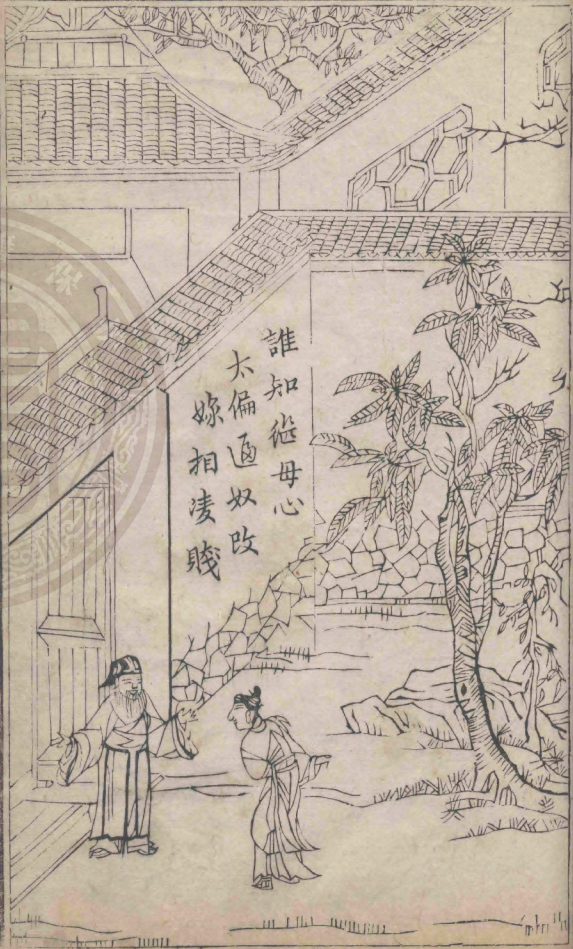 誰知継母心
太偏逼奴改
嫁相凌賤